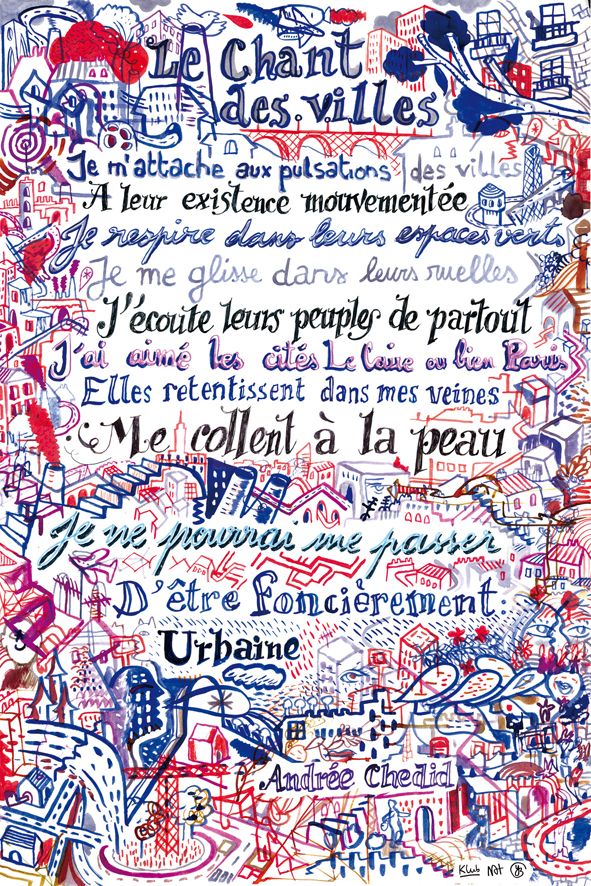 Le Chant
des villes
Je m'attache aux pulsations des villes
A leur existence mouvementée
Je respire dans leurs espaces verts
Je me glisse dans leurs ruelles
J'écoute leurs peuples de partout
J'ai aimé les cités Le Caire ou bien Paris
Elles retentissent dans mes veines
Me collent à la peau
Je ne pourrai me passer
D'être foncièrement:
Urbaine
Andrée Chedid
Klub